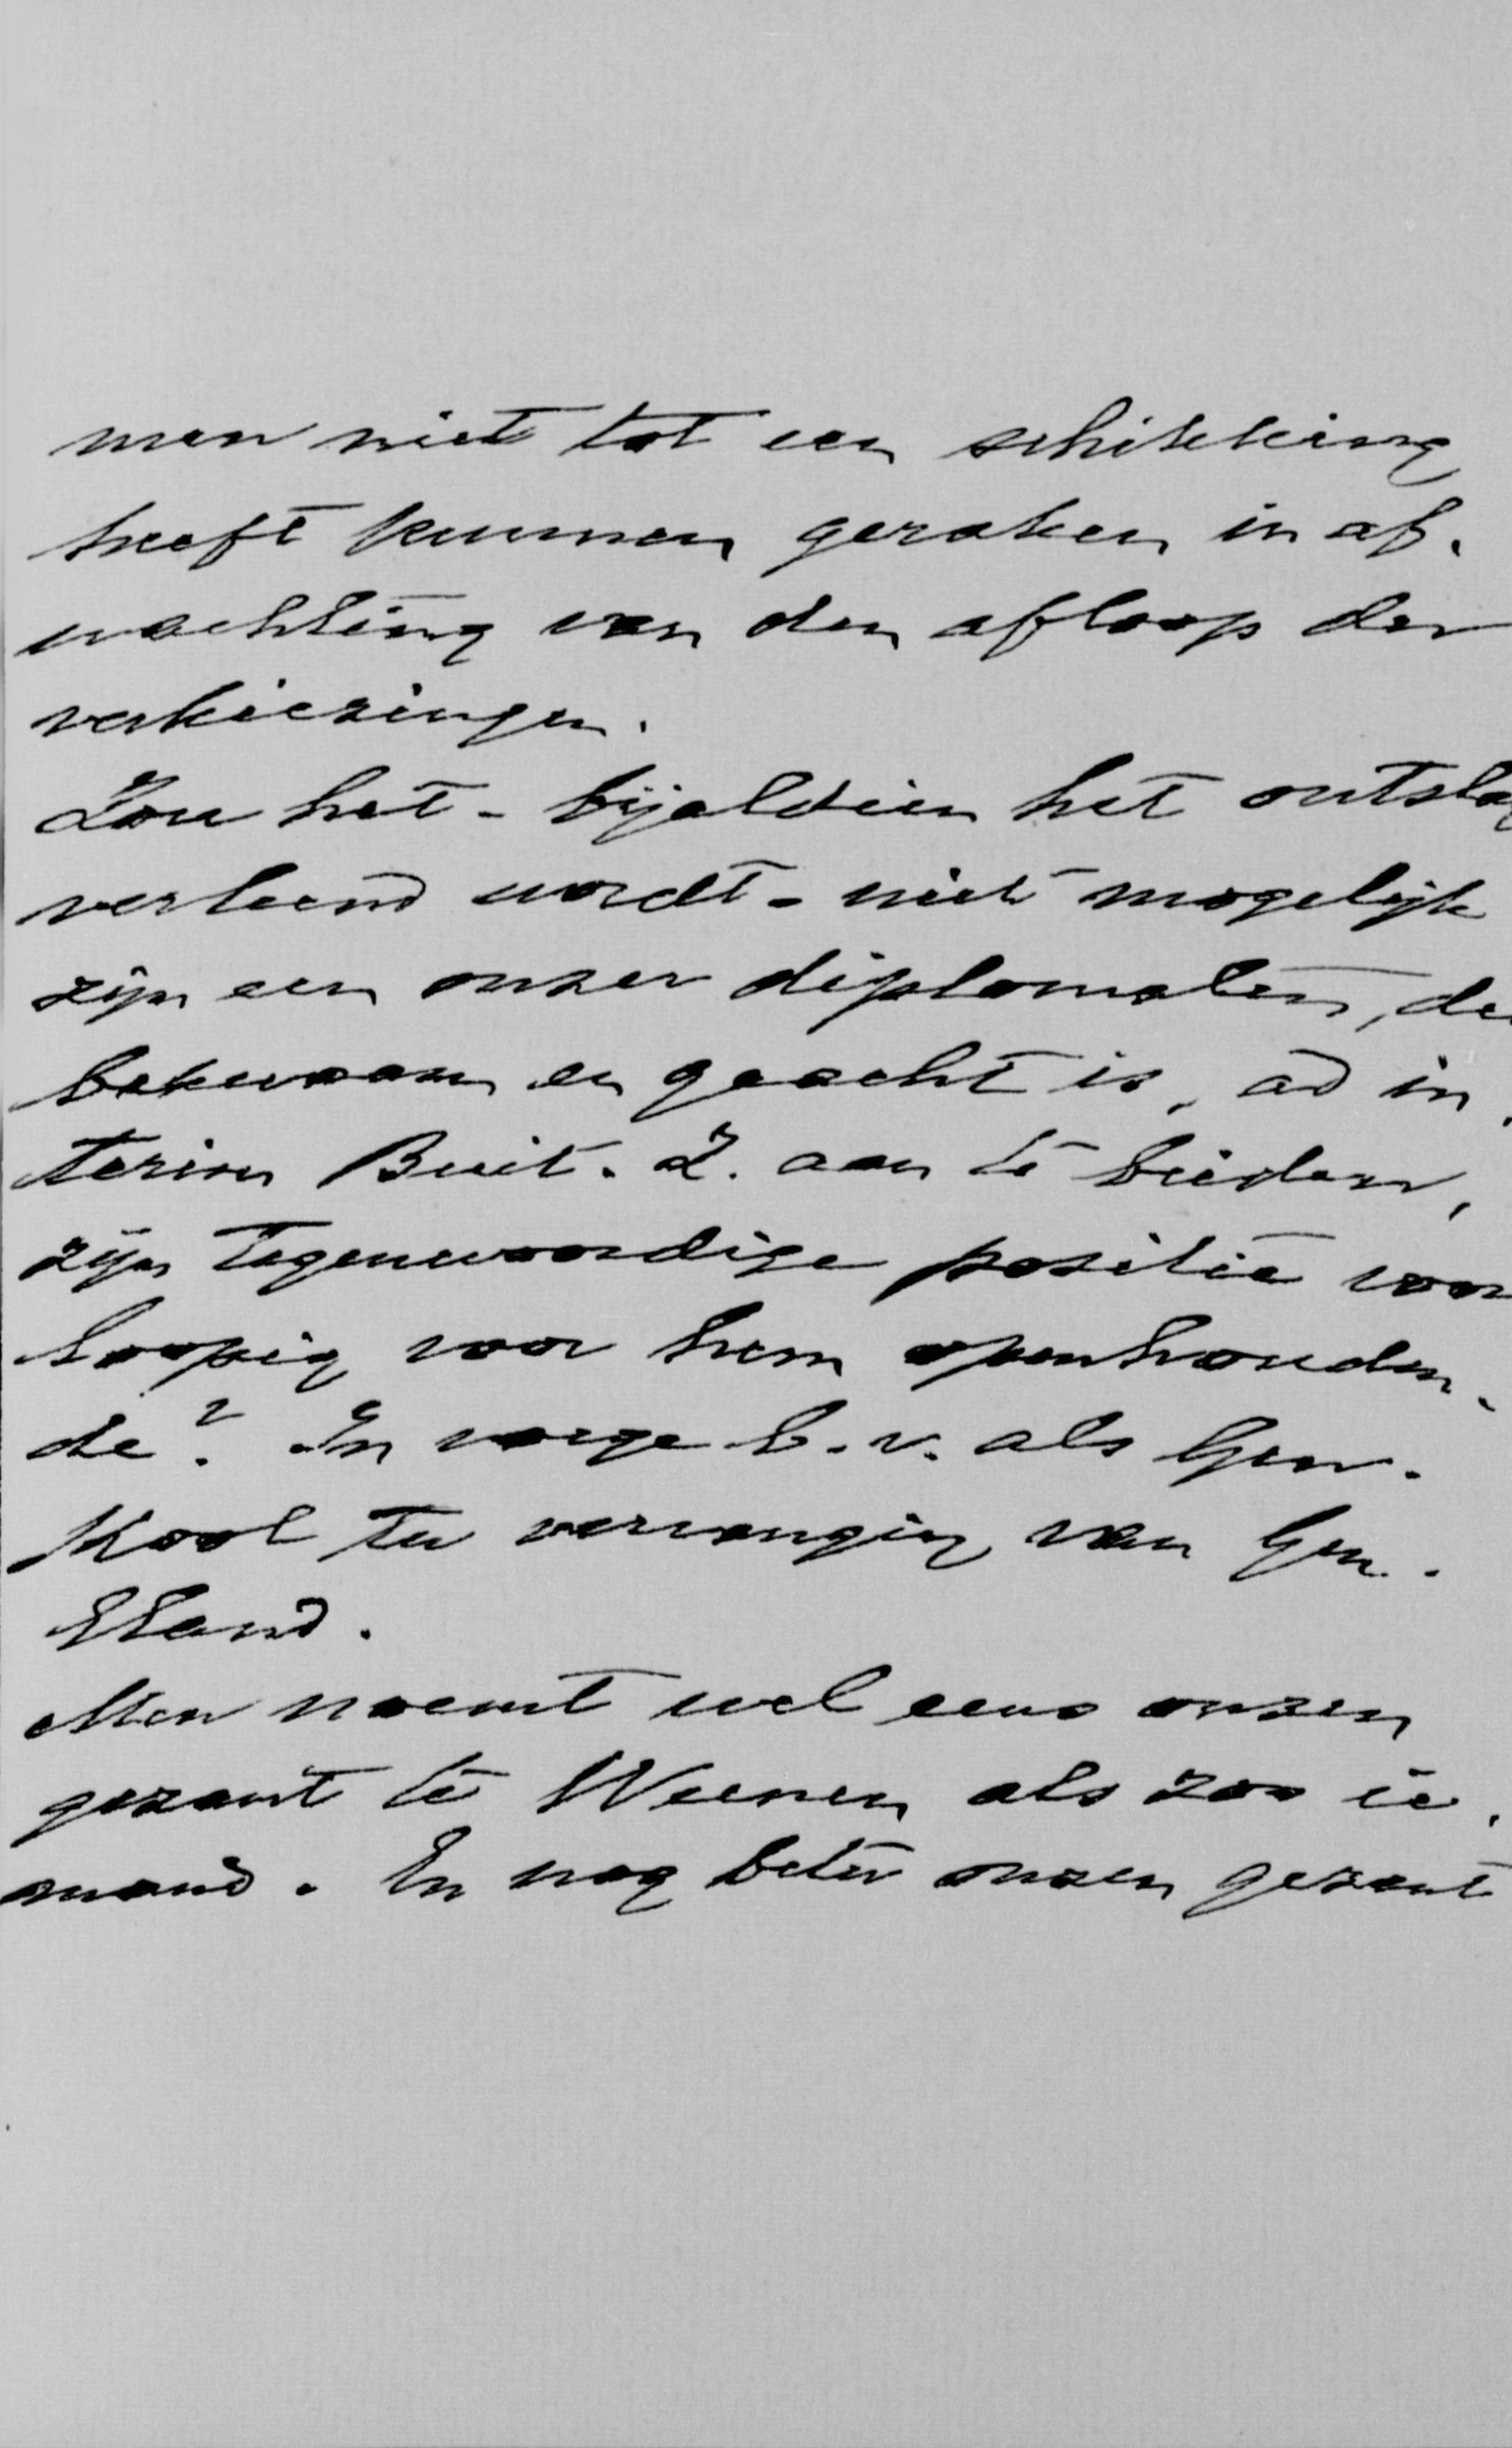 men niet tot een schikking
heeft kunnen geraken in af-
wachting van den afloop der
verkiezingen.
Zou het - bijaldien het ontslag
verleend wordt - niet mogelijk
zijn een onzer diplomaten, de
bekwaam en geacht is, ad in-
terim Buit. Z. aan te bieden,
zijn tegenwoordige positie voor
loopig voor hem openhouden-
de? In vorge b.v. als Gen.
Kool ter vervanging van Gen.
Eland.
Men noemt wel eens onzen
gezant te Weenen als zoo ie-
mand. En nog beter onzen gezant